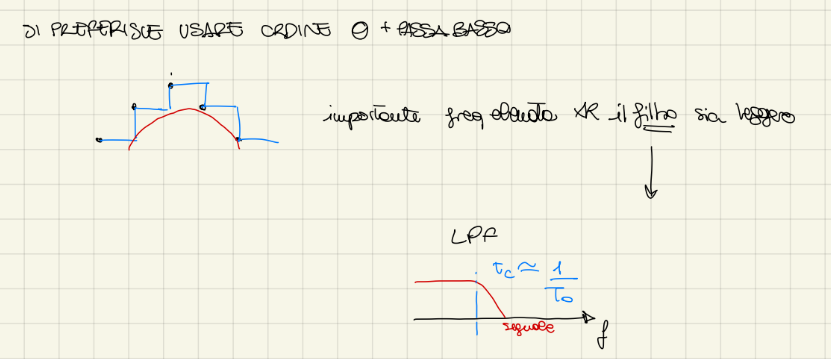 SI PREFERISCE USARE ORDINE 0 + PASSA BASSO
importante freq elevata xk il filtro sia leggero
LPF
τc ≃ 1/T0
segnale
f